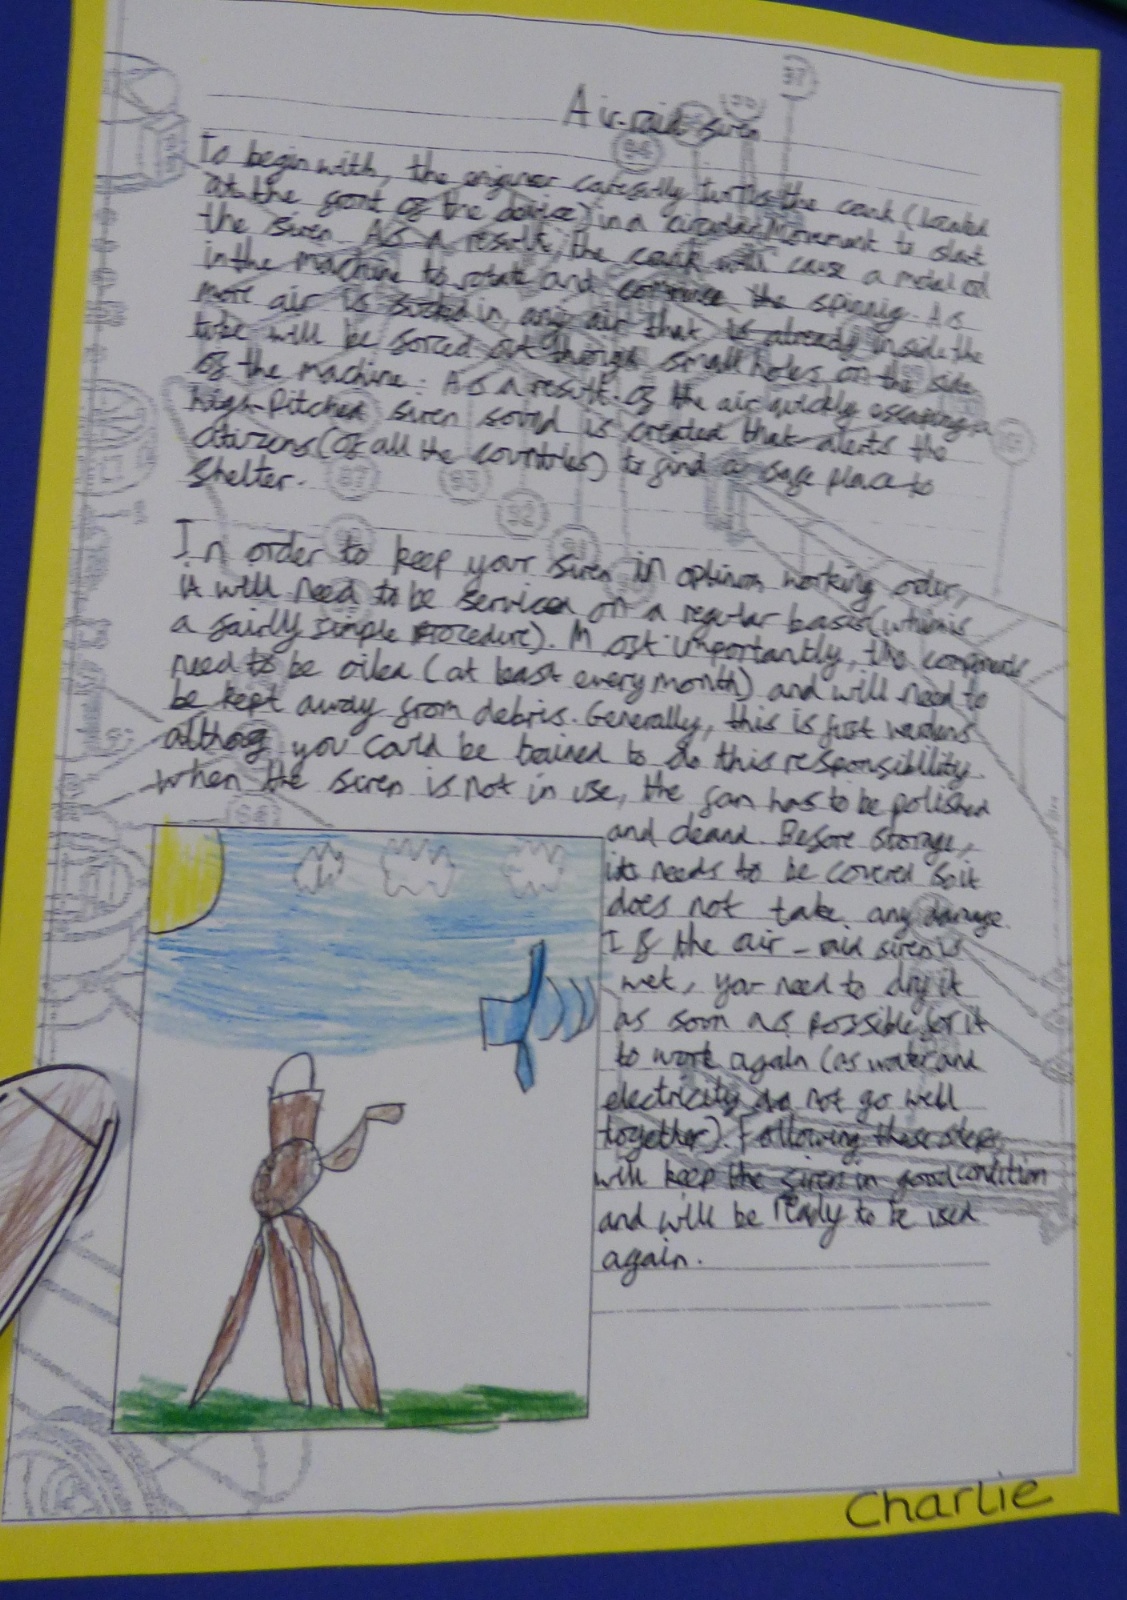 Air-raid siren
To begin with, the engineer carefully turns the crank (located
at the front of the device) in a circular movement to start
the siren. As a result, the crank will cause a metal rod
in the machine to rotate and commence the spinnig. As
more air is sucked in, any air that is already inside the
tube will be forced out through small holes on the side
of the machine. As a result of the air quickly escaping, a
high-pitched siren sound is created that alerts the
citizens (of all the countries) to find a safe place to
shelter.
In order to keep your siren in optimom working order,
it will need to be serviced on a regular basis (which is
a fairly simple procedure). Most importantly, the components
need to be oiled (at least every month) and will need to
be kept away from debris. Generally, this is just wardens
although you could be trained to do this responsibility.
When the siren is not in use, the fan has to be polished
and cleand. Before storage,
it needs to be covered so it
does not take any damage.
If the air-raid siren is
wet, you need to dry it
as soon as possible for it
to work again (as water and
electricity do not go well
together). Following these steps
will keep the siren in good condition
and will be ready to be used
again.
Charlie
97
94
87
93
92
91